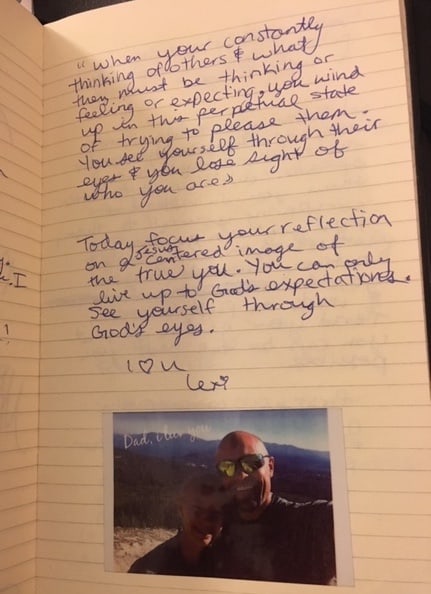 " When your constantly
thinking of others & what
they must be thinking or
feeling or expecting, you wind
up in this perpetual state
of trying to please them.
You see yourself through their
eyes & you lose sight of
who you are"
Today focus your reflection
on a Jesus centered image of
the true you. You can only
live up to God's expectations.
See yourself through
God's eyes.
I ♡ U
Lexi
Dad, i luv you
I
!